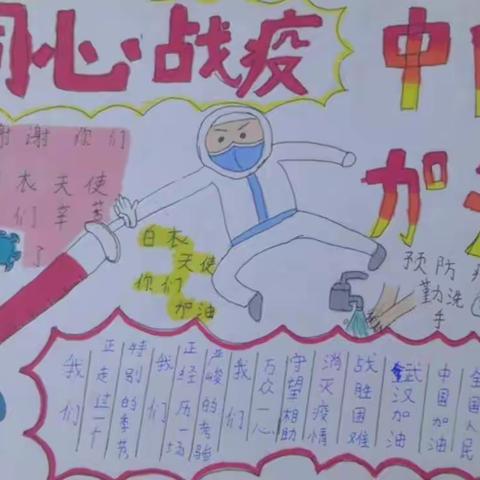 同心战疫
中
加
谢谢你们
衣天使
们辛苦
了
白衣
天使
你们
加油
预防
勤洗
手
我们
正走过一个
特别的季节
我们
正经历一场
严峻的考验
我们
万众一心
守望相助
消灭疫情
战胜困难
武汉加油
中国加油
全国人民